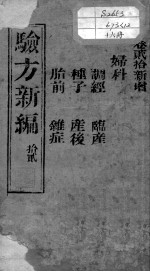 卷贰拾新增
婦科
調經 臨產
種子 產後
胎前 雜症
驗方新編
拾貳